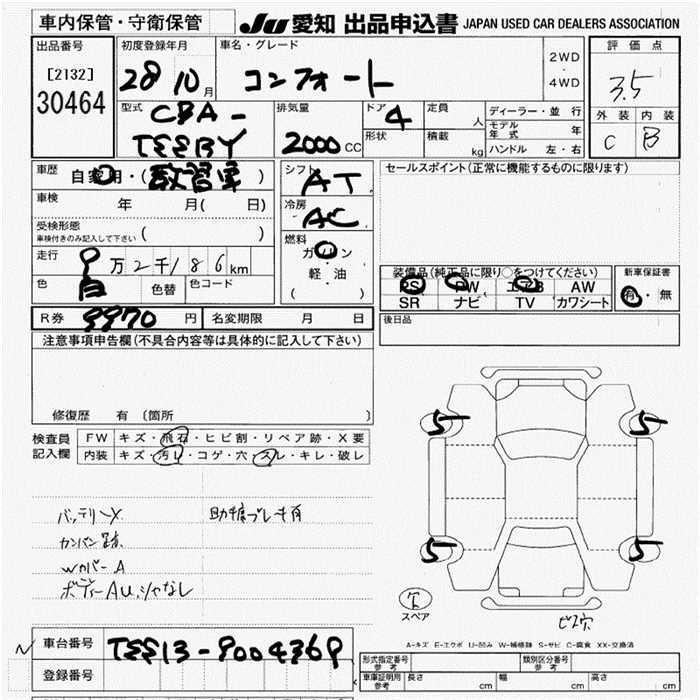 車内保管・守衛保管
JU 愛知 出品申込書 JAPAN USED CAR DEALERS ASSOCIATION
出品番号
[2132]
30464
初度登録年月
28 10 月
車名・グレード
コンフォート
2WD
・
4WD
評価点
3.5
外装 内装
C B
型式
CBA-
排気量
2000 CC
ドア
4
形状
定員
人
積載
kg
ディーラー・並行
モデル年式 年
ハンドル 左・右
車歴
自家用・(教習車)
車検
年 月( 日)
受検形態
車検付きのみ記入して下さい ( )
走行
9万2千186km
色
白
色替
色コード
シフト
AT
冷房
AC
燃料
ガソリン
軽・油
( )
セールスポイント(正常に機能するものに限ります)
装備品(純正品に限り○をつけてください)
PS PW エアB AW
SR ナビ TV カワシート
新車保証書
有・無
R券 9970 円
名変期限 月 日
後日品
注意事項申告欄(不具合内容等は具体的に記入して下さい)
修復歴 有〔箇所 〕
検査員記入欄
FW キズ・飛石・ヒビ割・リペア跡・X要
内装 キズ・汚レ・コゲ・穴・スレ・キレ・破レ
バッテリーX
助手席ブレーキ有
カンバン跡
WカバーA
ボディーAU、シャなし
5 5
5 5
欠
スペア
ビス穴
A-キズ E-エクボ U-凹み W-補修跡 S-サビ C-腐食 XX-交換済
車台番号
登録番号
形式指定番号 参考
類別区分番号 参考
車庫証明用 参考
長さ cm
幅 cm
高さ cm